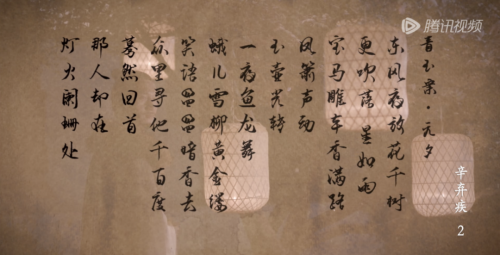 腾讯视频
青玉案·元夕
东风夜放花千树
更吹落 星如雨
宝马雕车香满路
凤箫声动
玉壶光转
一夜鱼龙舞
蛾儿雪柳黄金缕
笑语盈盈暗香去
众里寻他千百度
蓦然回首
那人却在
灯火阑珊处
辛弃疾
2